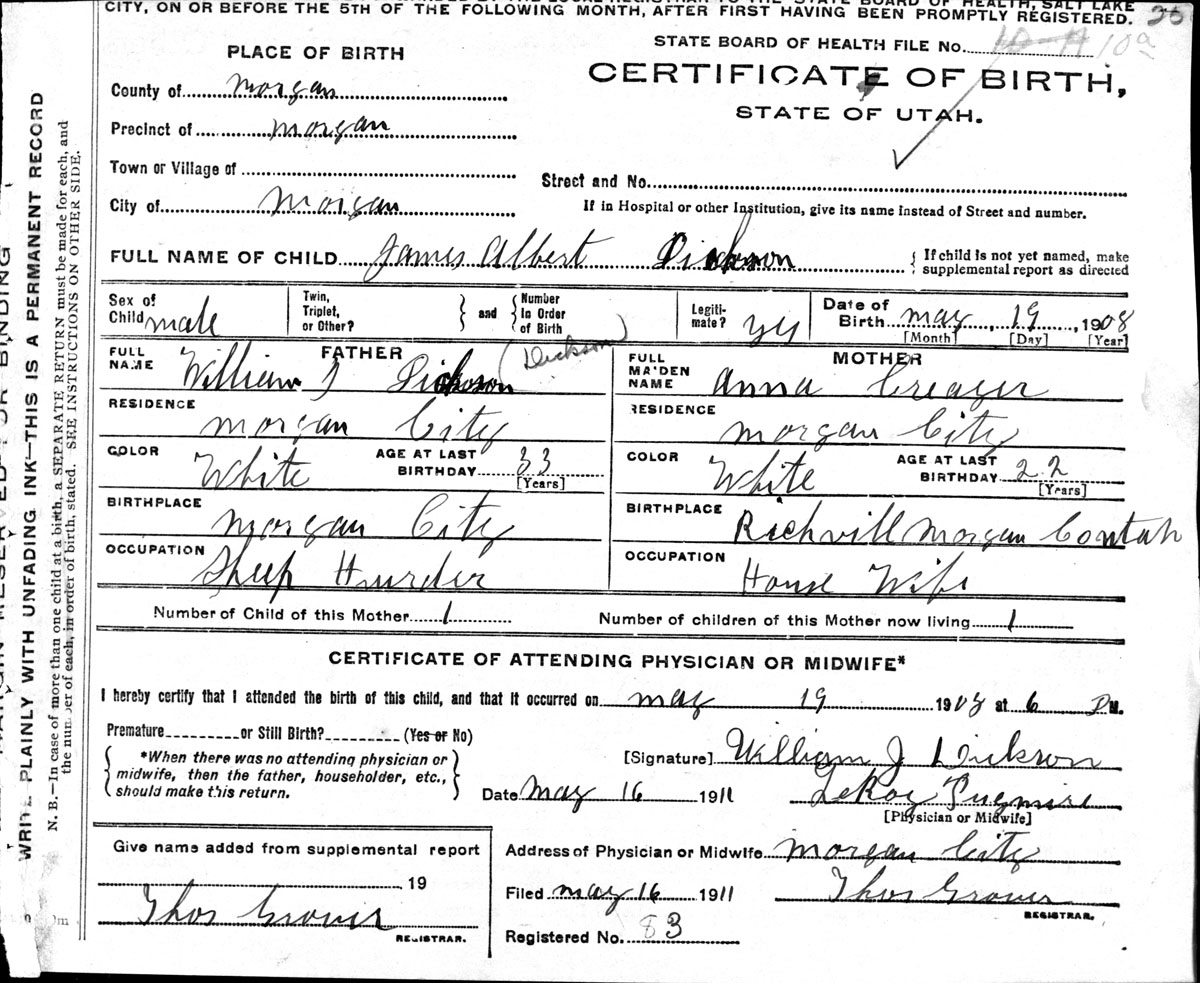 CITY, ON OR BEFORE THE 5TH OF THE FOLLOWING MONTH, AFTER FIRST HAVING BEEN PROMPTLY REGISTERED. 20
PLACE OF BIRTH
STATE BOARD OF HEALTH FILE No. 10a
CERTIFICATE OF BIRTH,
STATE OF UTAH.
County of Morgan
Precinct of Morgan
Town or Village of
City of Morgan
Street and No.
If in Hospital or other Institution, give its name instead of Street and number.
FULL NAME OF CHILD James Albert Dickson
{ If child is not yet named, make
supplemental report as directed
Sex of Child male
Twin, Triplet, or Other? } and { Number In Order of Birth
Legiti-mate? yes
Date of Birth may, 19, 1908
[Month] [Day] [Year]
FATHER
FULL NAME William J Dickson (Dickson)
RESIDENCE morgan City
COLOR White AGE AT LAST BIRTHDAY 33
[Years]
BIRTHPLACE morgan City
OCCUPATION Sheep Hurder
MOTHER
FULL MAIDEN NAME Anna Creager
RESIDENCE morgan City
COLOR White AGE AT LAST BIRTHDAY 22
[Years]
BIRTHPLACE Richvill Morgan Co utah
OCCUPATION House Wife
Number of Child of this Mother 1
Number of children of this Mother now living 1
CERTIFICATE OF ATTENDING PHYSICIAN OR MIDWIFE*
I hereby certify that I attended the birth of this child, and that it occurred on may 19 1908 at 6 P M.
Premature or Still Birth? (Yes or No)
*When there was no attending physician or
midwife, then the father, householder, etc.,
should make this return.
[Signature] William J Dickson
Date may 16 1911 LeRoy Pugmire
[Physician or Midwife]
Give name added from supplemental report
19
Thos Grover
REGISTRAR.
Address of Physician or Midwife morgan City
Filed may 16 1911 Thos Grover
REGISTRAR.
Registered No. 83
WRITE PLAINLY WITH UNFADING INK—THIS IS A PERMANENT RECORD
N. B.—In case of more than one child at a birth, a SEPARATE RETURN must be made for each, and
the number of each, in order of birth, stated. SEE INSTRUCTIONS ON OTHER SIDE.